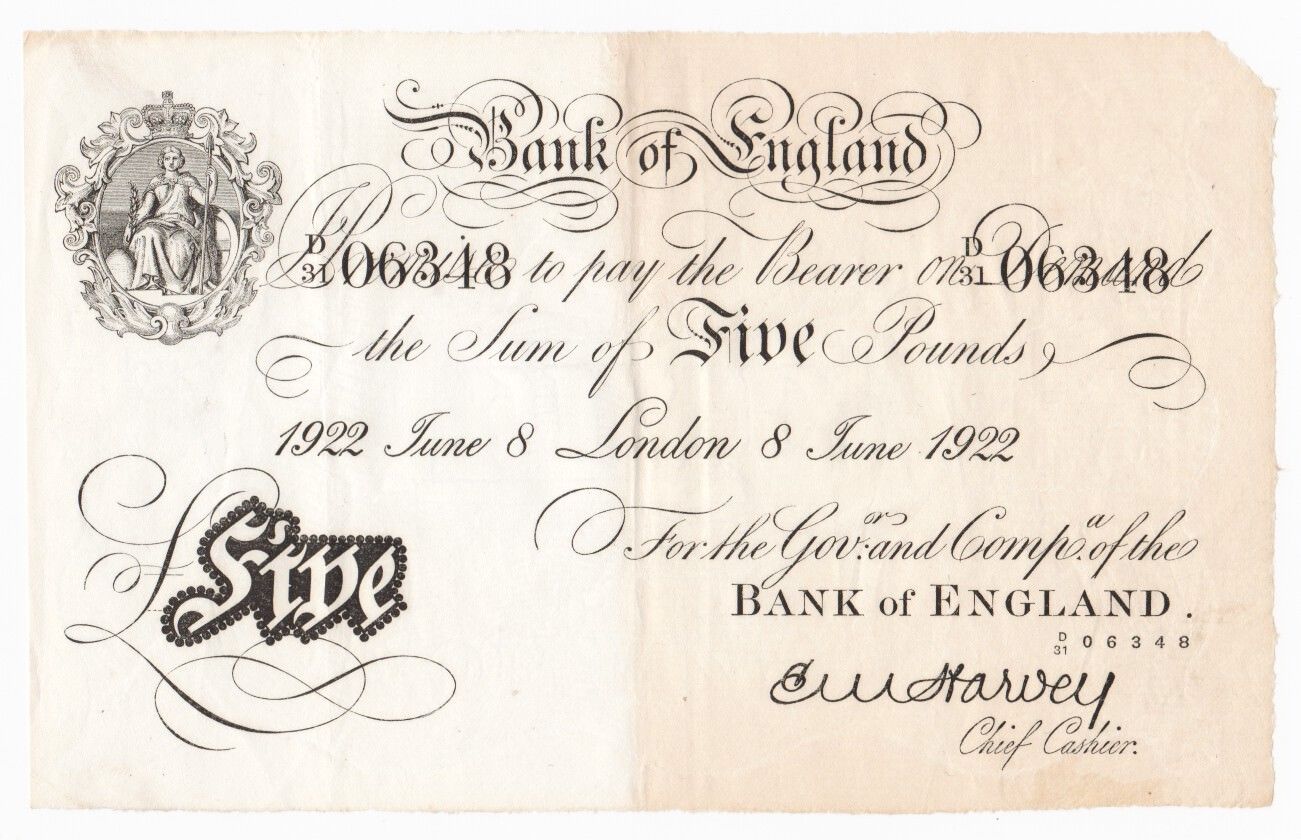 Bank of England
D/31 06348 Promise to pay the Bearer on Demand D/31 06348
the Sum of Five Pounds
1922 June 8 London 8 June 1922
For the Govʳ: and Compᵃ. of the
BANK of ENGLAND.
D/31 06348
Five
E M Harvey
Chief Cashier.